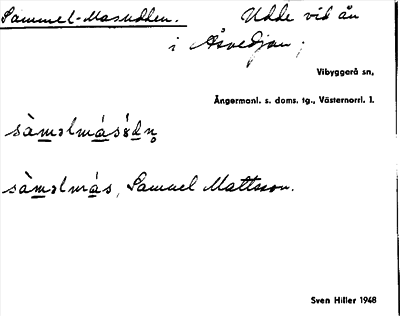 Sammel-Masudden. Udde vid ån
i Åsvedjan;
Vibyggerå sn,
Ångermanl. s. doms. tg., Västernorrl. l.
sàməlmás
sàməlmás, Samuel Mattsson.
Sven Hiller 1948